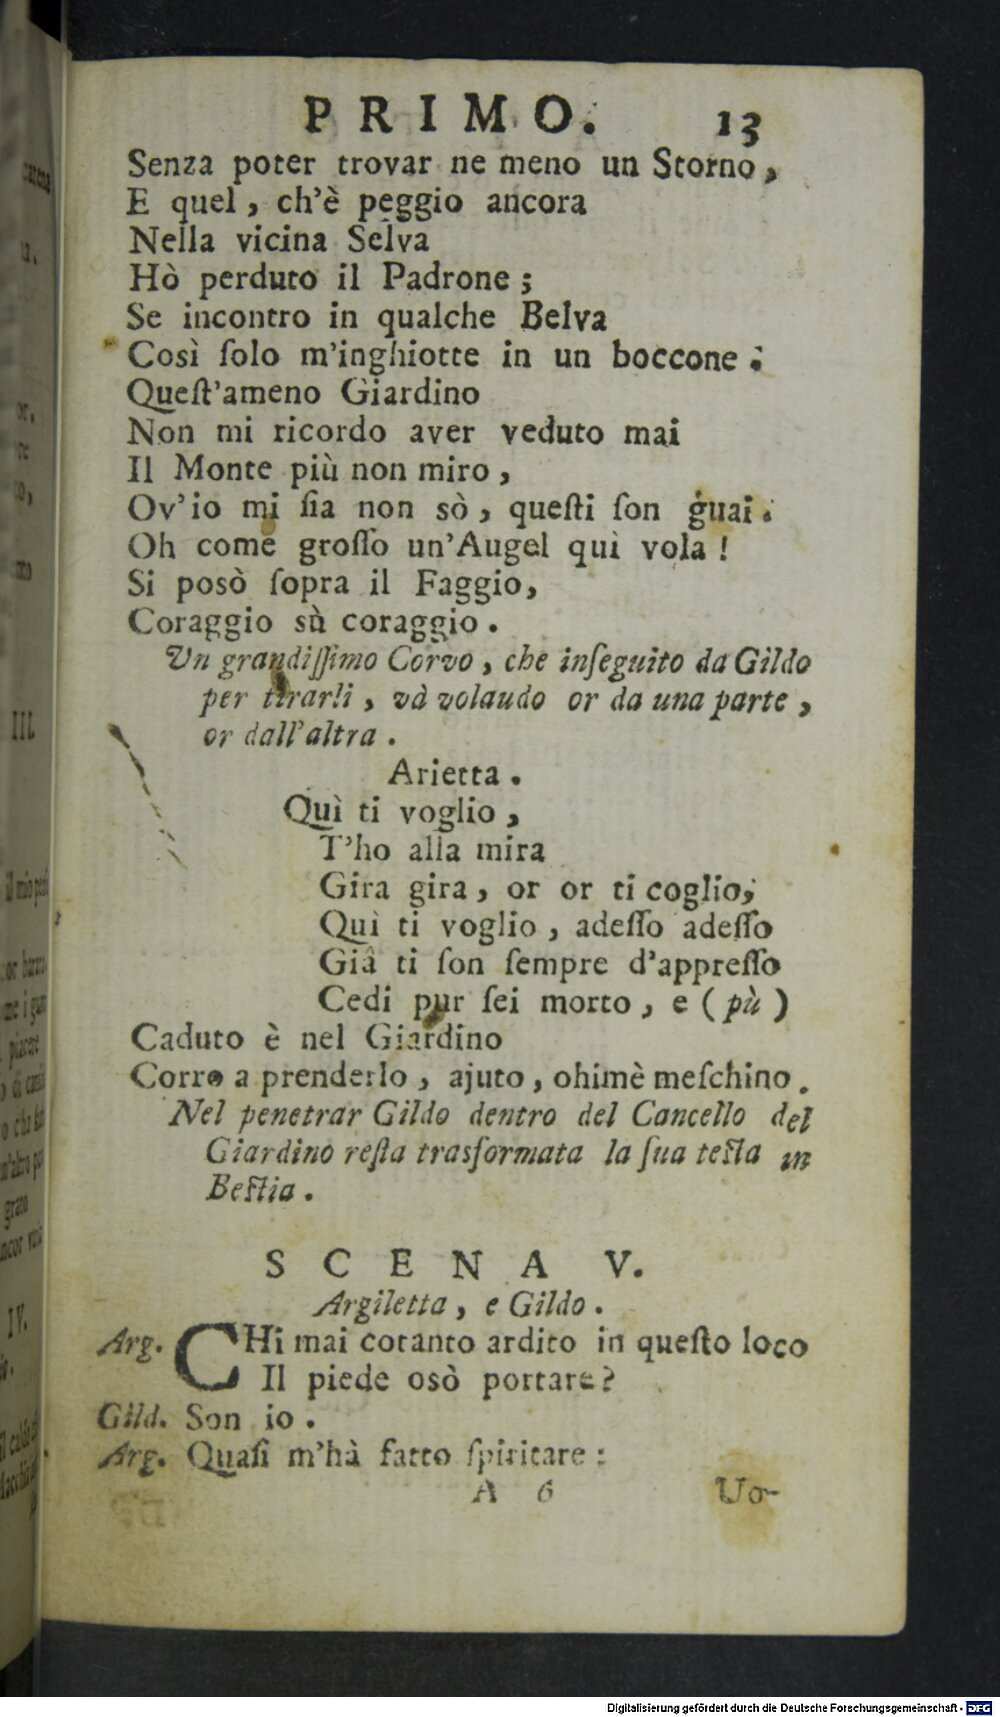 PRIMO. 13
Senza poter trovar ne meno un Storno,
E quel, ch'è peggio ancora
Nella vicina Selva
Hò perduto il Padrone;
Se incontro in qualche Belva
Così ſolo m'inghiotte in un boccone:
Queſt'ameno Giardino
Non mi ricordo aver veduto mai
Il Monte più non miro,
Ov'io mi ſia non sò, queſti ſon guai.
Oh come groſſo un'Augel quì vola!
Si posò ſopra il Faggio,
Coraggio sù coraggio.
Vn grandiſſimo Corvo, che inſeguito da Gildo
per tirarli, và volaudo or da una parte,
or dall'altra.
Arietta.
Quì ti voglio,
T'ho alla mira
Gira gira, or or ti coglio,
Quì ti voglio, adeſſo adeſſo
Già ti ſon ſempre d'appreſſo
Cedi pur ſei morto, e (pù)
Caduto è nel Giardino
Corro a prenderlo, ajuto, ohimè meſchino.
Nel penetrar Gildo dentro del Cancello del
Giardino reſta trasformata la ſua teſta in
Beſtia.
SCENA V.
Argiletta, e Gildo.
Arg. CHi mai cotanto ardito in queſto loco
Il piede osò portare?
Gild. Son io.
Arg. Quaſi m'hà fatto ſpiritare:
A 6 Uo-
Digitalisierung gefördert durch die Deutsche Forschungsgemeinschaft - DFG